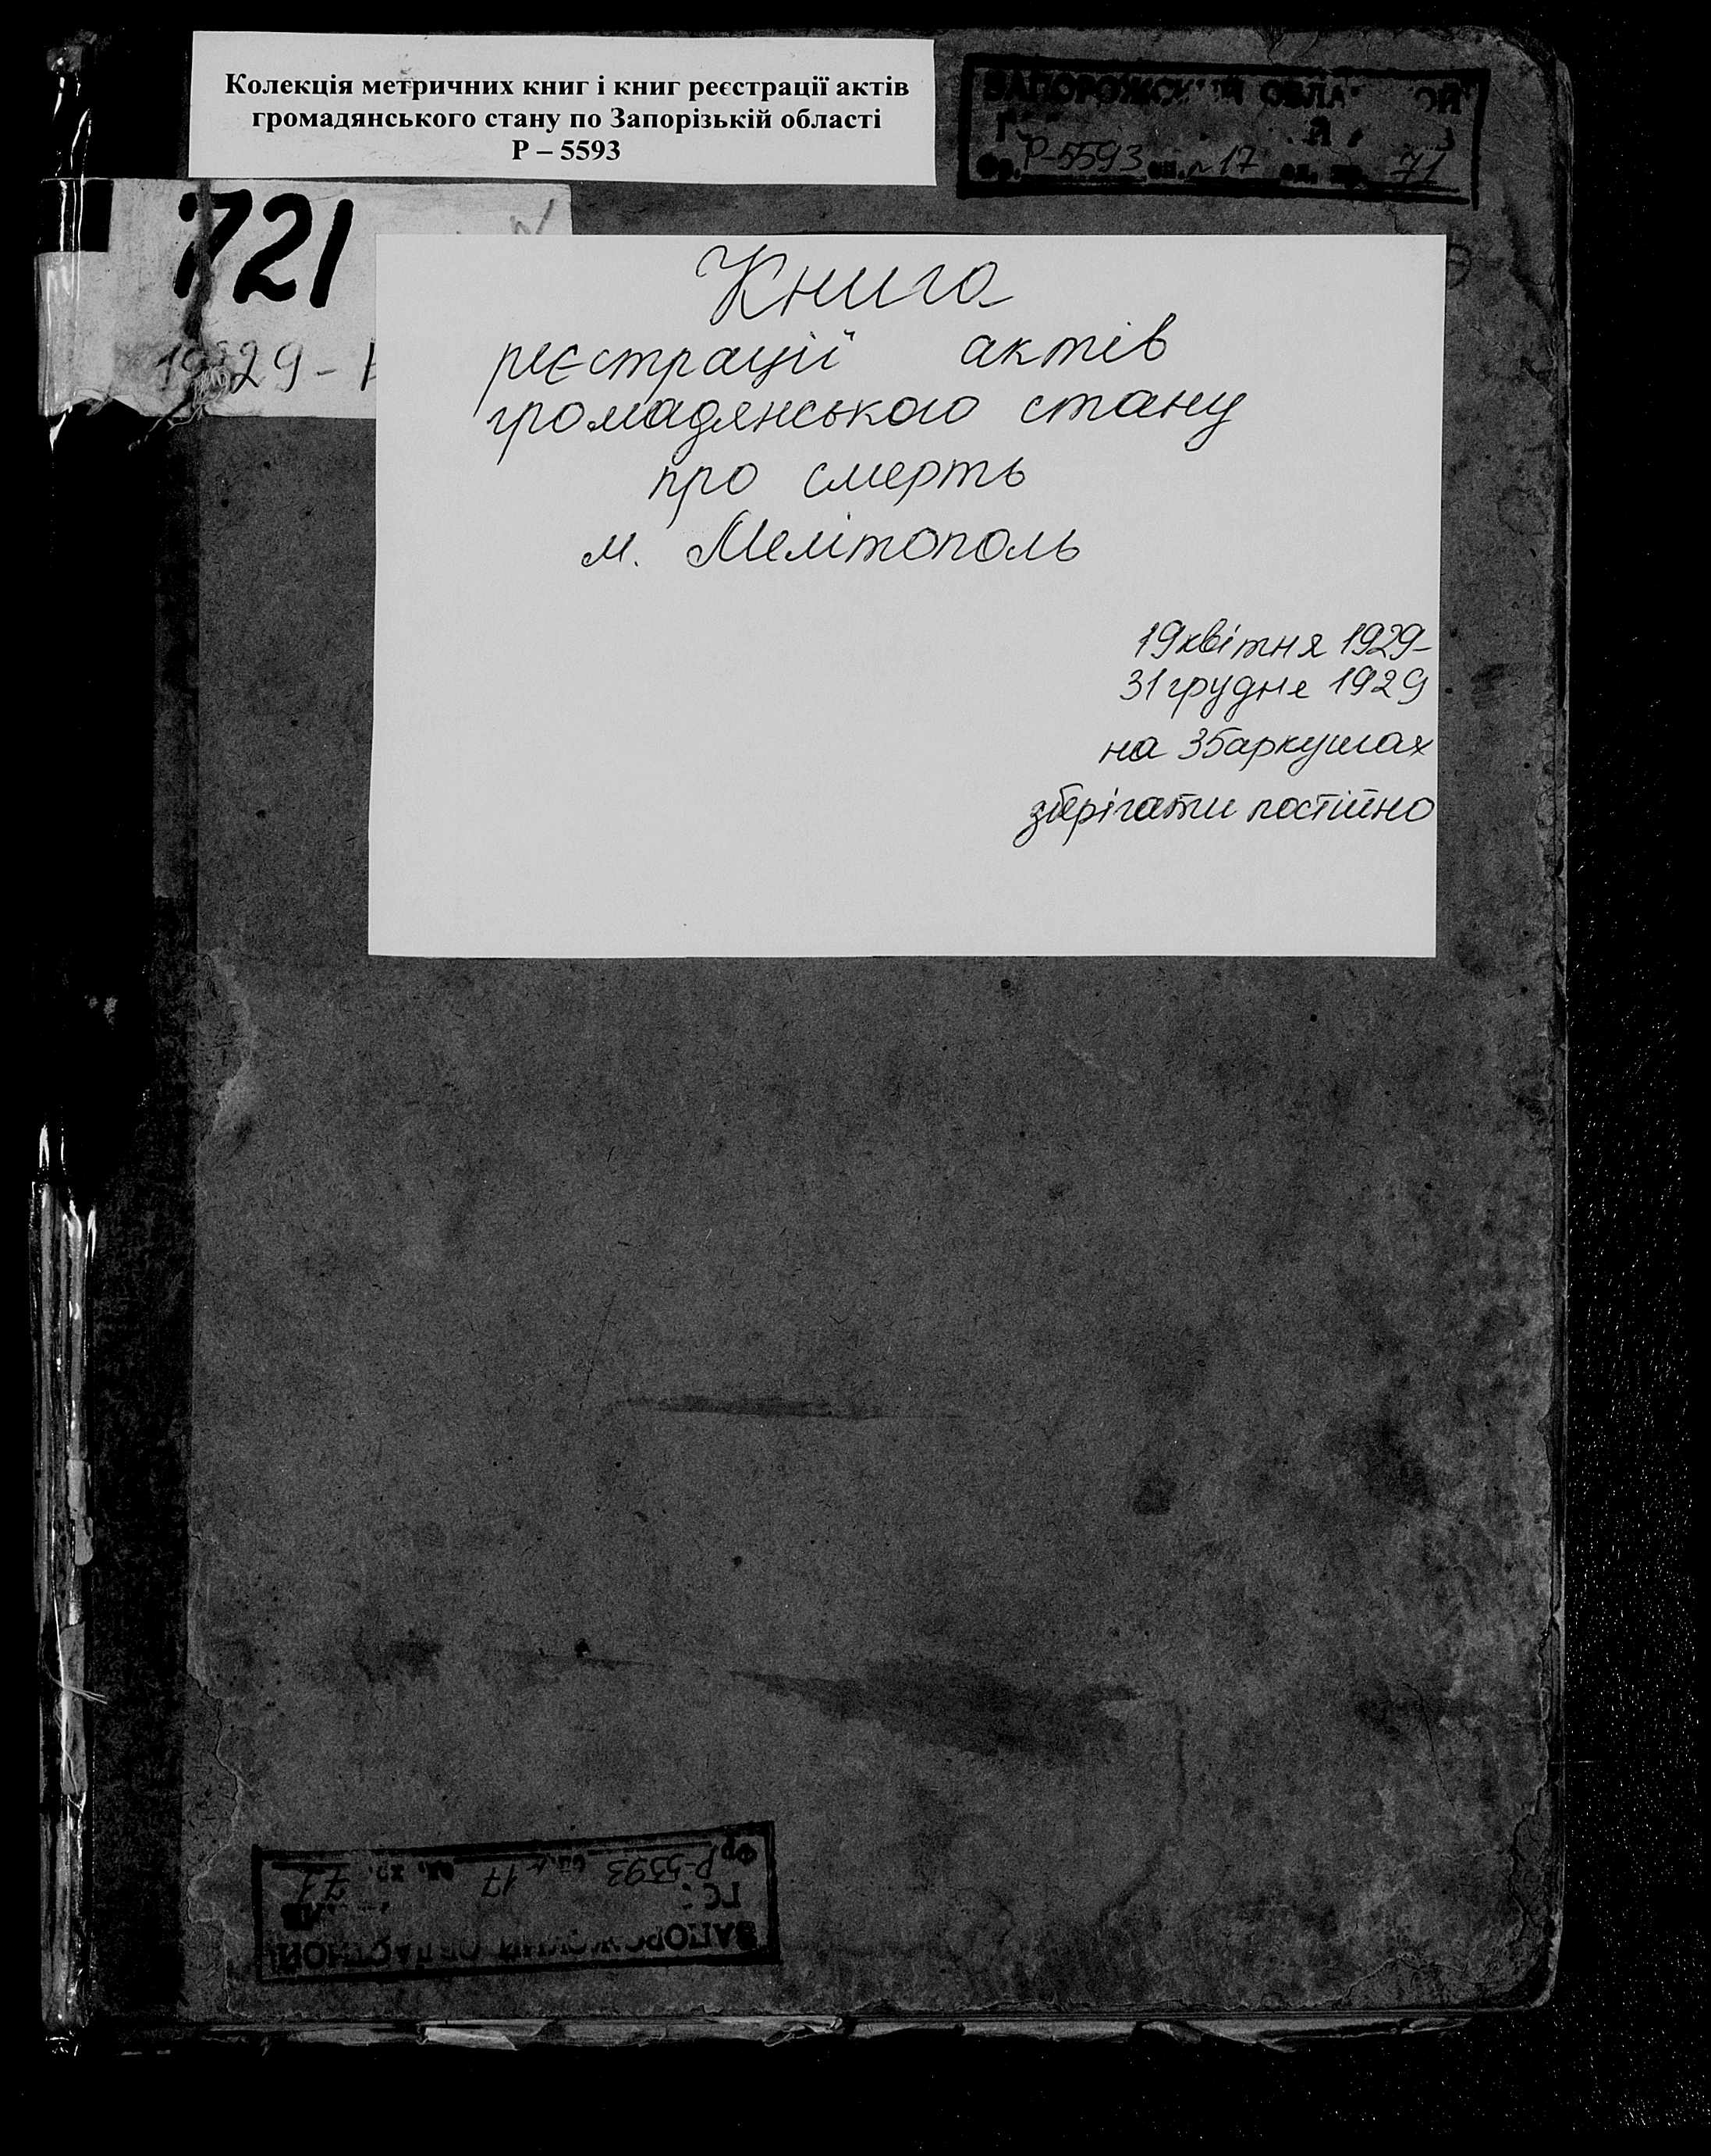 Колекція метричних книг і книг реєстрації актів
громадянського стану по Запорізькій області
Р – 5593
Р-5593 оп. 17 ед. хр. 71
721
1929 -
Книга
реєстрації актів
громадянського стану
про смерть
м. Мелітополь
19 квітня 1929-
31 грудня 1929
на 35 аркушах
зберігати постійно
Фр. Р-5593 оп. 17 ед. хр. 71
ЗАПОРОЖСКИЙ ОБЛАСТНОЙ